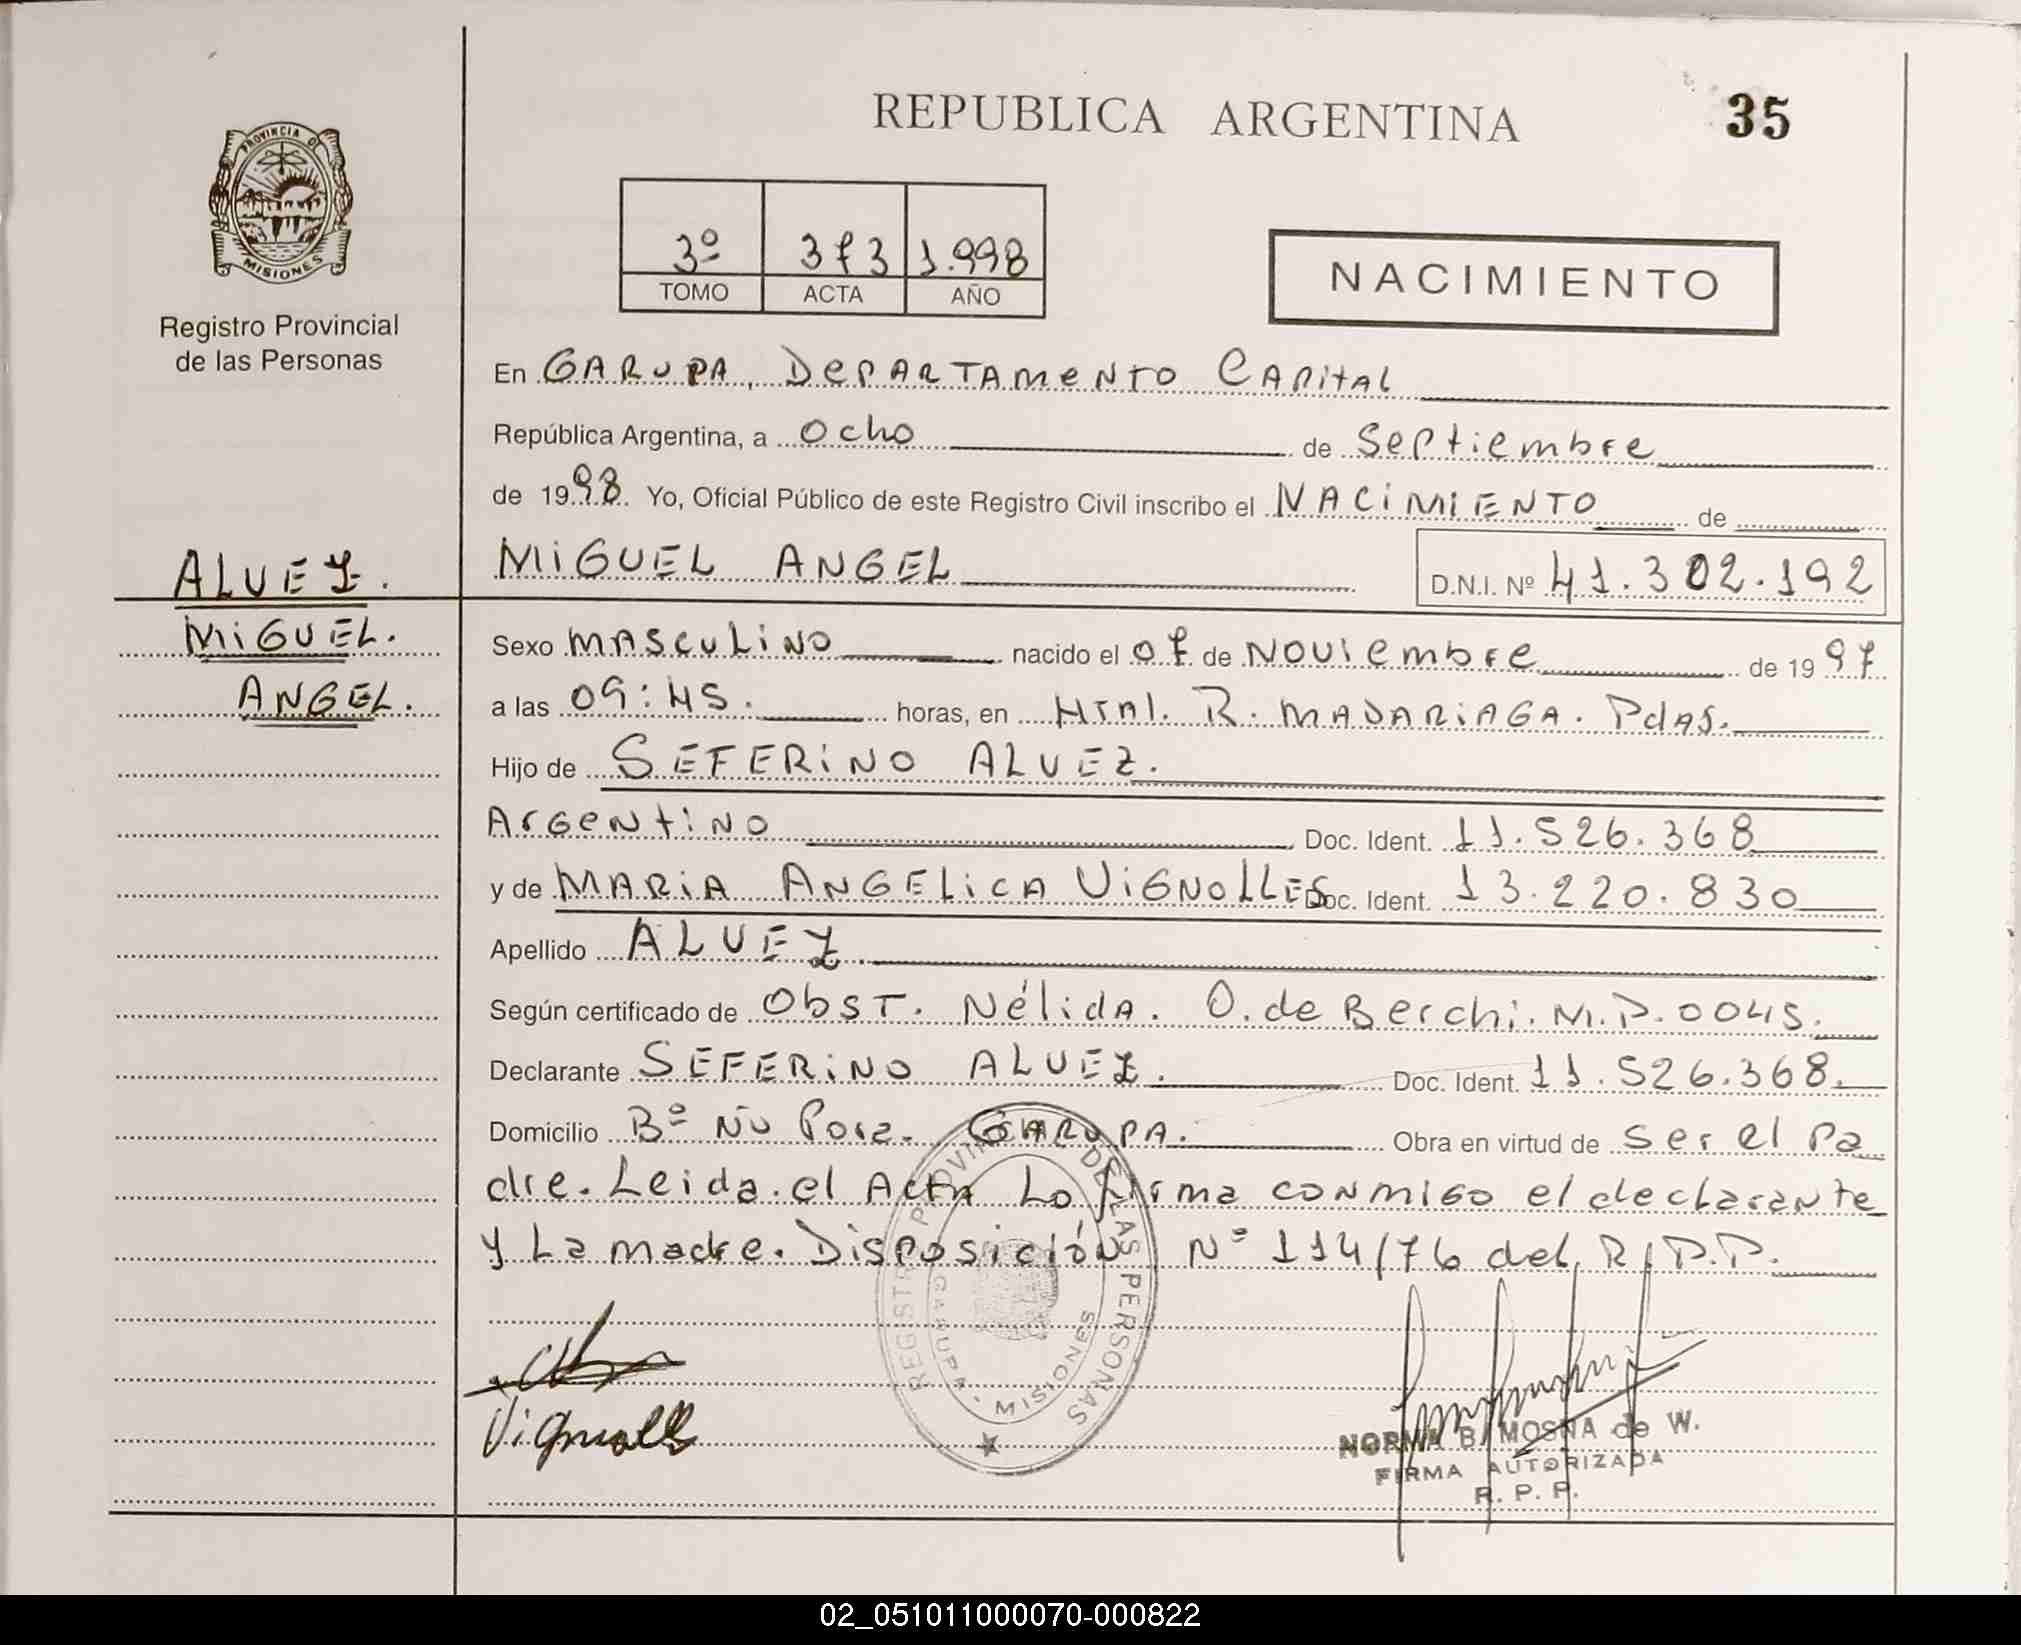 REPUBLICA ARGENTINA
35
PROVINCIA DE
MISIONES
Registro Provincial
de las Personas
3º 373 1.998
TOMO ACTA AÑO
NACIMIENTO
En GARUPA, DePARTAmeNTO CAPitAL
República Argentina, a Ocho de Septiembre
de 1998 Yo, Oficial Público de este Registro Civil inscribo el NACiMIENTO de
MiGUEL ANGEL
D.N.I. Nº 41.302.192
ALVEZ.
MiGUEL.
ANGEL.
Sexo MASCULiNO nacido el 07 de Noviembre de 1997
a las 09:45. horas, en HTAL. R. MADARiAGA. PdAS.
Hijo de SEFERiNO ALVEZ.
ArGeNtiNO Doc. Ident. 11.526.368
y de MARiA ANGELiCA ViGNOLLES Doc. Ident. 13.220.830
Apellido ALVEZ.
Según certificado de ObST. Nélida. O. de Berchi. M.P. 0045.
Declarante SEFERiNO ALVEZ. Doc. Ident. 11.526.368.
Domicilio Bº Ñu Porá. GARUPA. Obra en virtud de Ser el Pa
dre. Leida el Acta Lo firma conmigo el declarante
y La madre. Disposición Nº 114/76 del R.P.P.
REGISTRO PROVINCIAL DE LAS PERSONAS
GARUPA - MISIONES
Vignolles
NORMA B. MOSNA de W.
FIRMA AUTORIZADA
R. P. P.
02_051011000070-000822